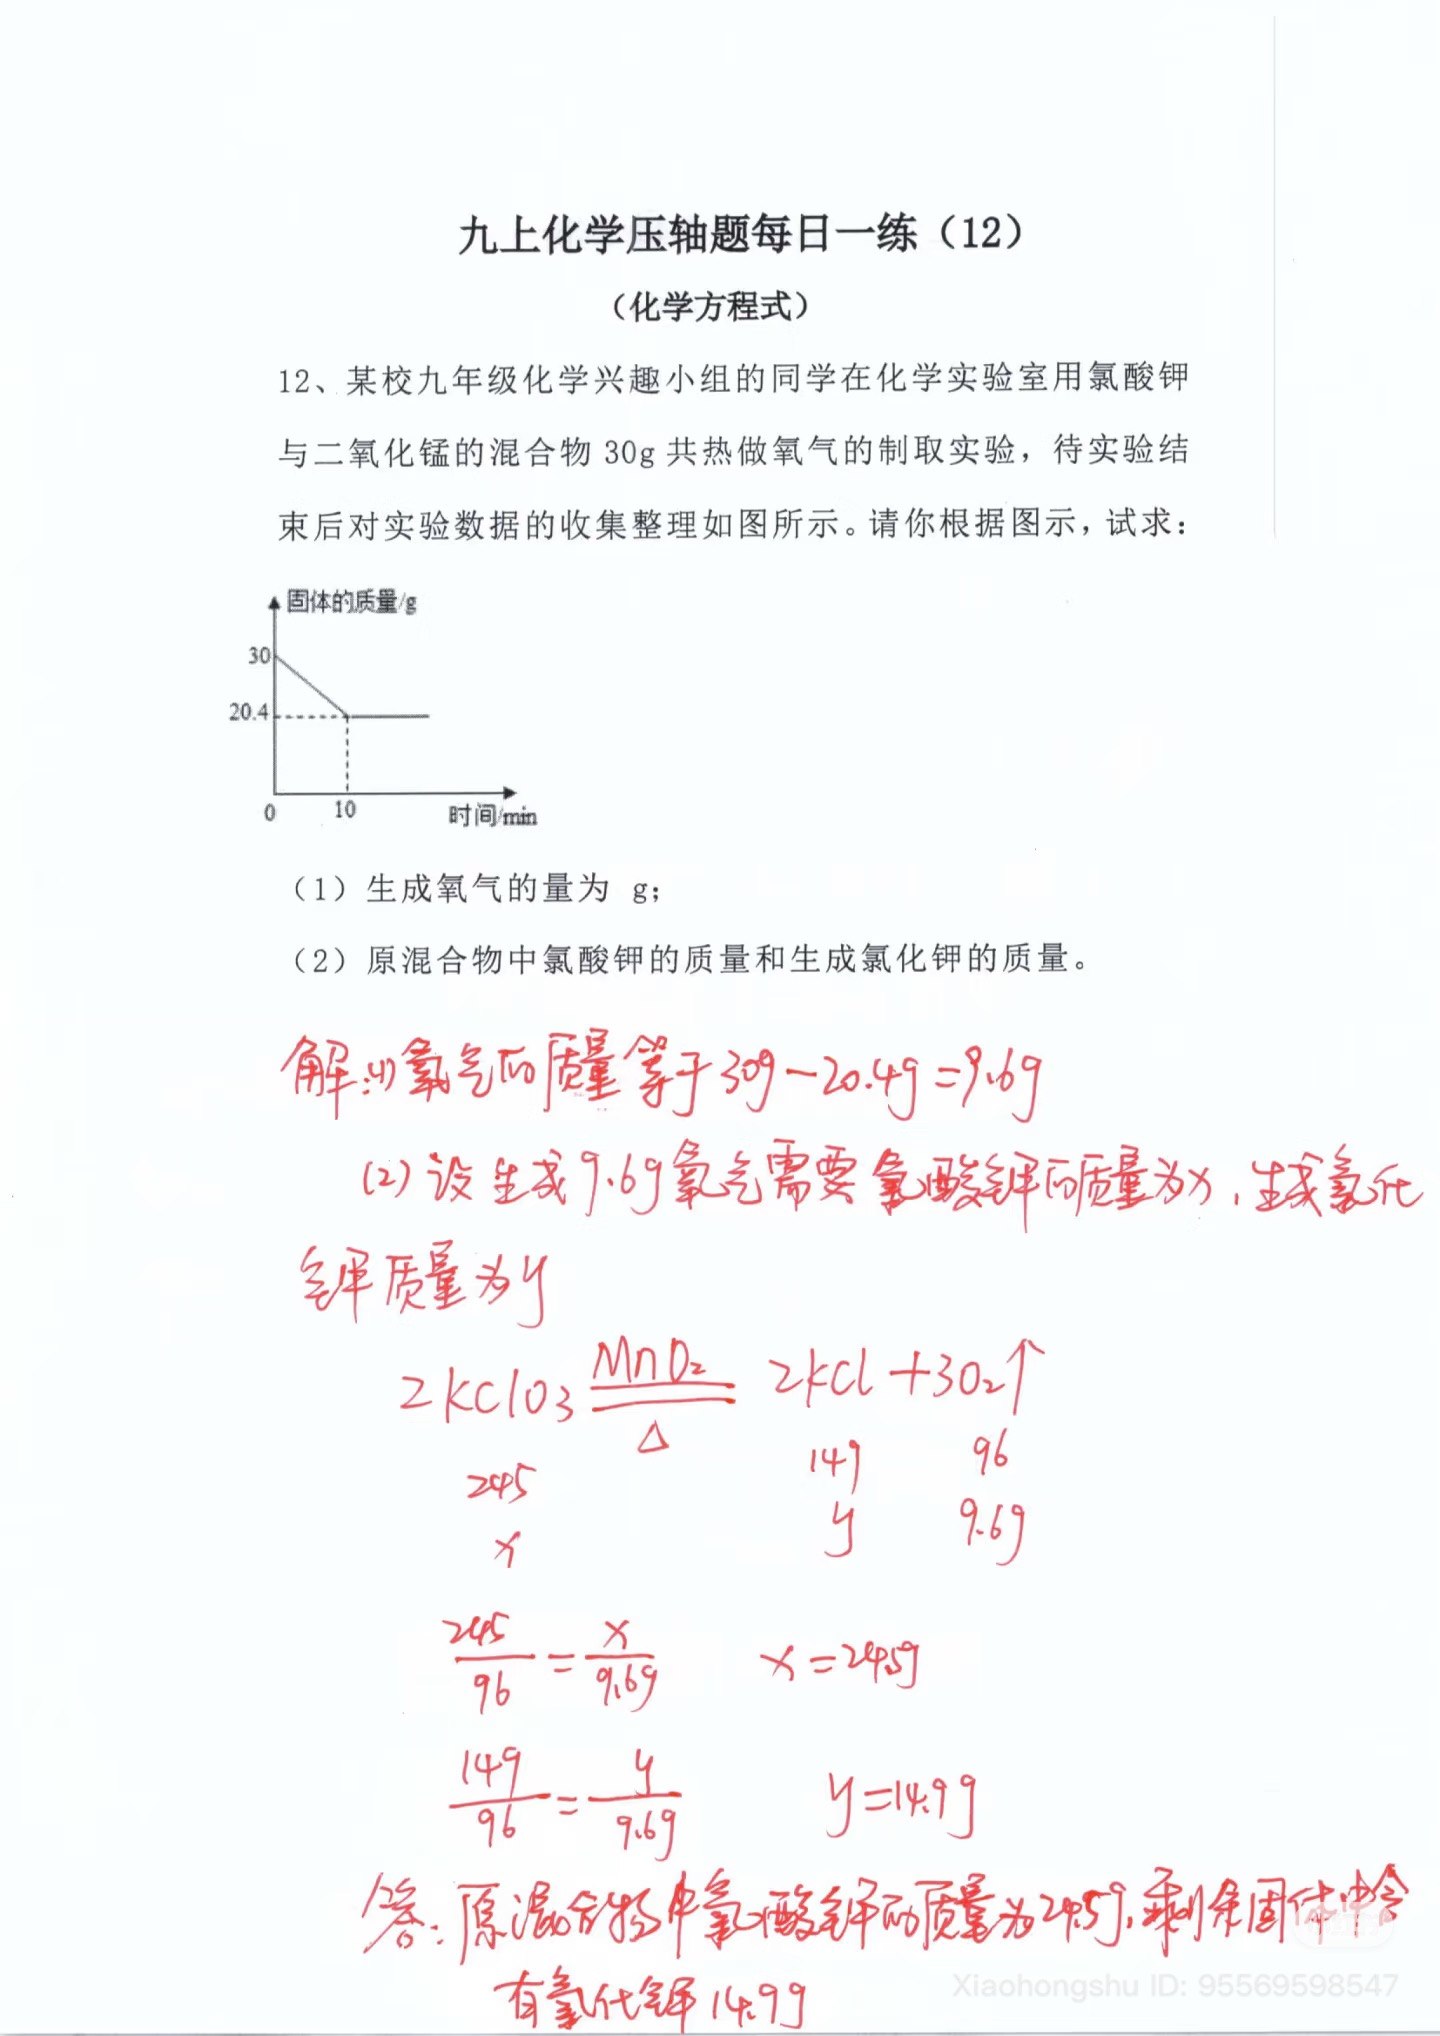 九上化学压轴题每日一练（12）
（化学方程式）
12、某校九年级化学兴趣小组的同学在化学实验室用氯酸钾
与二氧化锰的混合物 30g 共热做氧气的制取实验，待实验结
束后对实验数据的收集整理如图所示。请你根据图示，试求：
固体的质量/g
30
20.4
0 10 时间/min
（1）生成氧气的量为 g；
（2）原混合物中氯酸钾的质量和生成氯化钾的质量。
解:(1)氧气的质量等于30g-20.4g=9.6g
(2)设生成9.6g氧气需要氯酸钾的质量为x,生成氯化
钾质量为y
2KClO₃ MnO₂ ══ △ 2KCl+3O₂↑
245 149 96
x y 9.6g
245/96 = x/9.6g x=24.5g
149/96 = y/9.6g y=14.9g
答:原混合物中氯酸钾的质量为24.5g,剩余固体中含
有氯化钾14.9g
Xiaohongshu ID: 95569598547